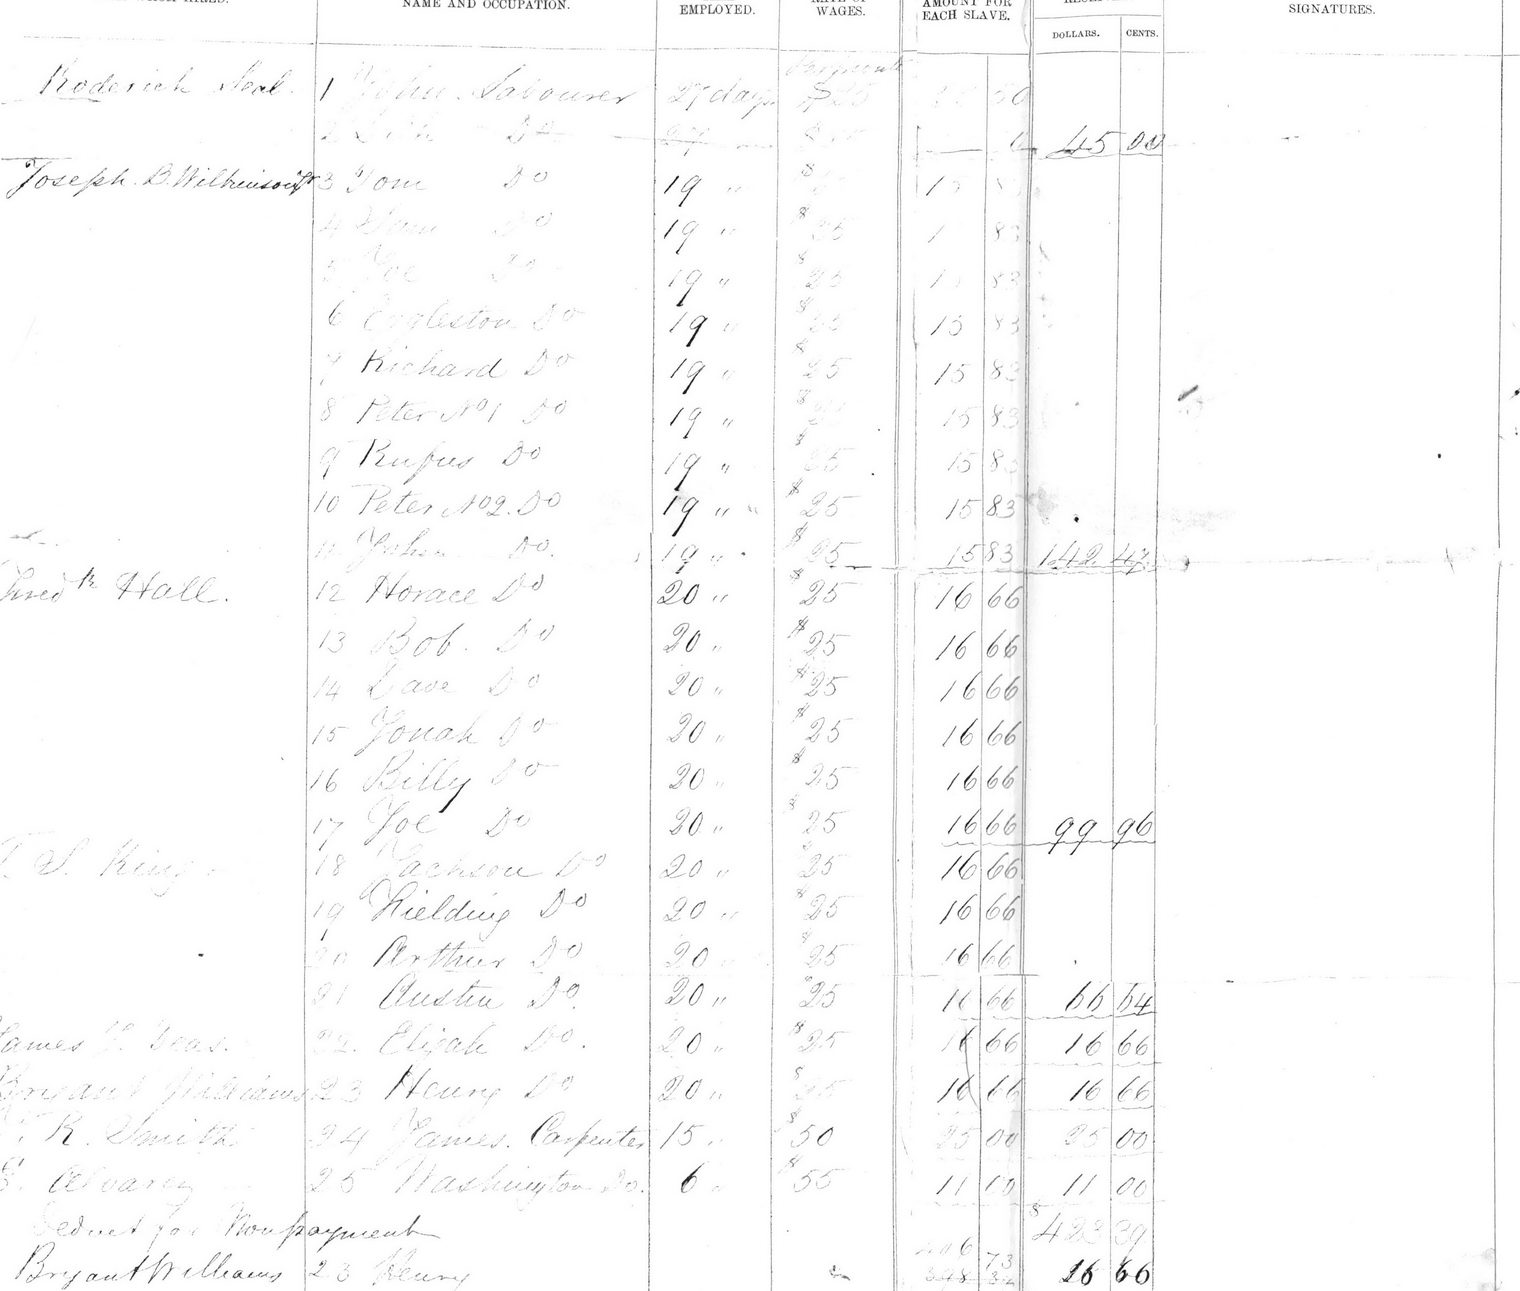 NAME AND OCCUPATION. EMPLOYED. WAGES. AMOUNT FOR EACH SLAVE. SIGNATURES.
DOLLARS. CENTS.
Roderick Seal. 1 John Labourer 27 days $25 50
2 Do 27 45 00
Joseph B. Wilkinson Jr 3 Tom Do 19 " $ 15 83
4 Sam Do 19 " $25 1 83
5 Joe Do 19 " $25 15 83
6 Eggleston Do 19 " $25 15 83
7 Richard Do 19 " $25 15 83
8 Peter No 1 Do 19 " $25 15 83
9 Rufus Do 19 " $25 15 83
10 Peter No 2. Do 19 " " $25 15 83
11 John Do. 19 " $25 15 83 142 47
Fredk Hall. 12 Horace Do 20 " $25 16 66
13 Bob. Do 20 " $25 16 66
14 Dave Do 20 " $25 16 66
15 Jonah Do 20 " $25 16 66
16 Billy Do 20 " $25 16 66
17 Joe Do 20 " $25 16 66 99 96
T. S. King 18 Jackson Do 20 " $25 16 66
19 Fielding Do 20 " $25 16 66
20 Arthur Do 20 $25 16 66
21 Austin Do. 20 " $25 16 66 66 64
James Deas. 22. Elijah Do. 20 " $25 16 66 16 66
Bryant Williams 23 Henry Do 20 " $25 16 66 16 66
R. Smith 24 James. Carpenter 15 " $50 25 00 25 00
Alvarez 25 Washington Do. 6 " $55 11 00 11 00
Deduct for Nonpayment $423 39
Bryant Williams 23 Henry 16 66